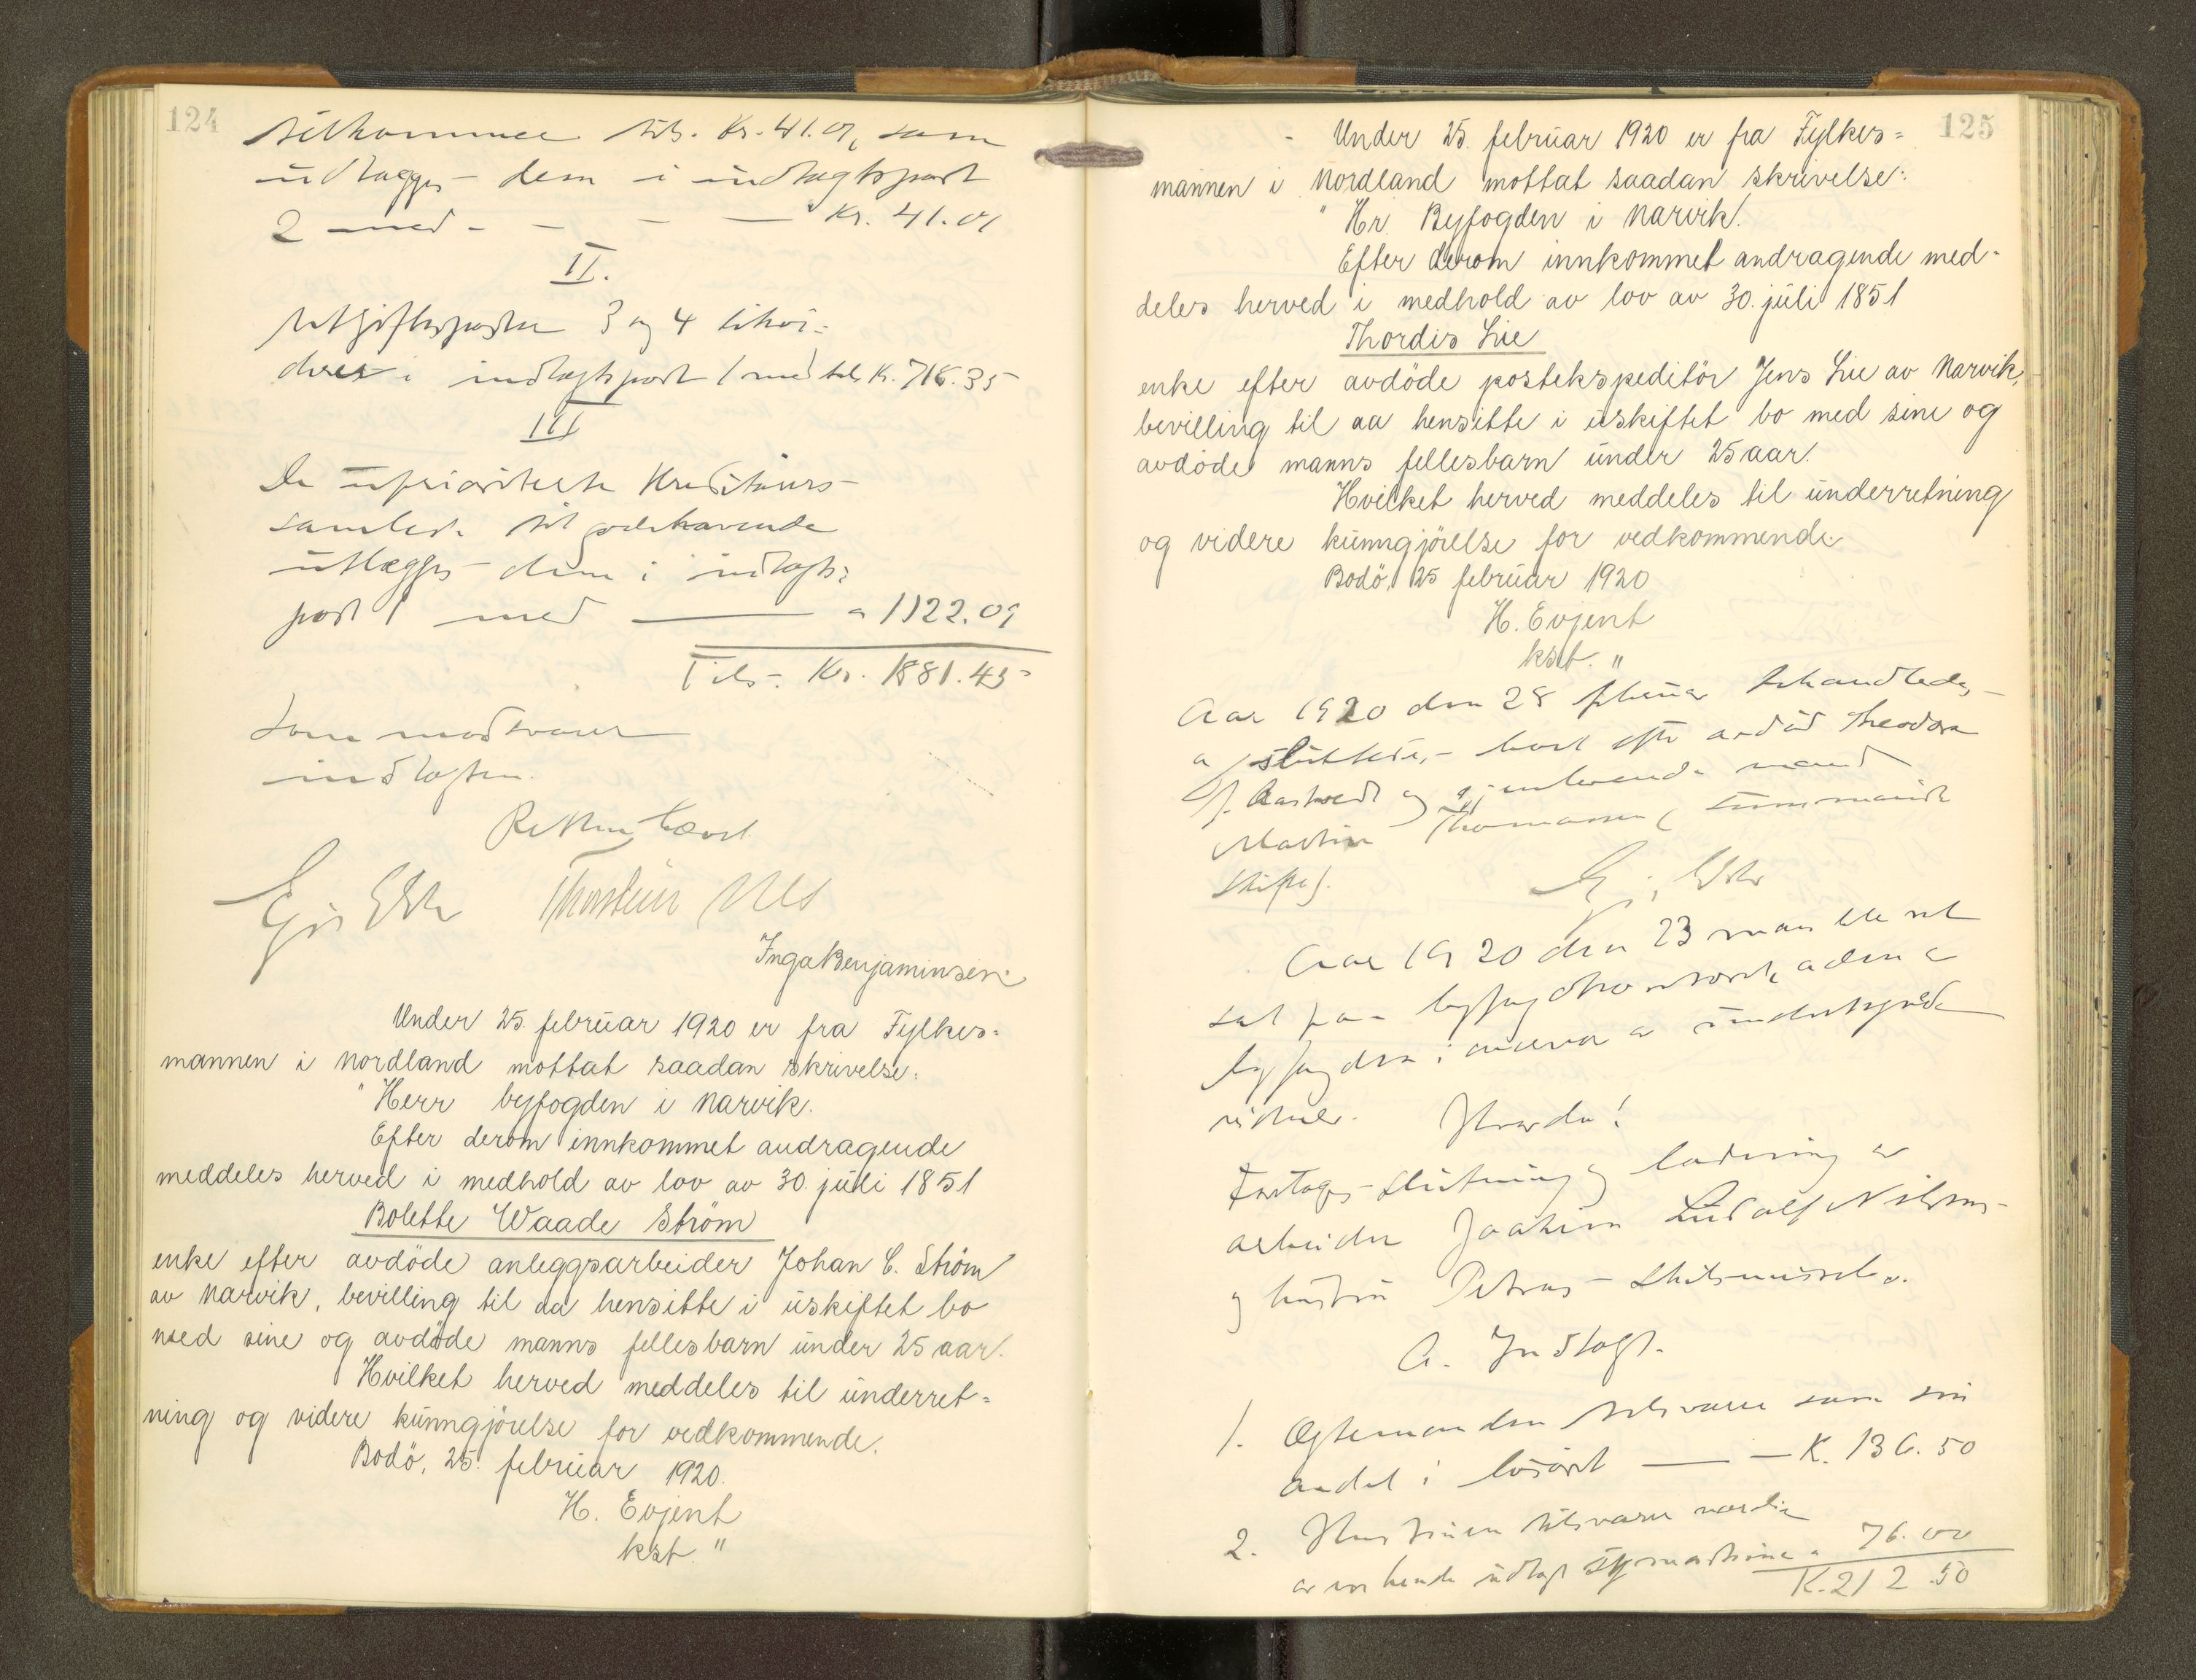 124
tilkommer tils. Kr. 41.01, som
udlægges dem i indtægtspost
2 med - - - — Kr. 41.01
II.
Utgiftsposter 3 og 4 likvi-
deres i indtægtspost 1 med tils. K. 718.35
III
De uprioriterte Kreditorers
samlede tilgodehavende
utlægges dem i indtægts-
post 1 med ——— " 1122.09
Tils. Kr. 1881.45
som modsvarer
indtægten.
Retten hævet
Thorstein Nils
Inga Benjaminsen
Under 25. februar 1920 er fra Fylkes=
mannen i Nordland mottat saadan skrivelse:
" Herr byfogden i Narvik.
Efter derom innkommet andragende
meddeles herved i medhold av lov av 30. juli 1851
Bolette Waade Ström
enke efter avdöde anleggsarbeider Johan C. Ström
av Narvik, bevilling til aa hensitte i uskiftet bo
med sine og avdöde manns fellesbarn under 25 aar.
Hvilket herved meddeles til underret=
ning og videre kunngjörelse for vedkommende.
Bodö, 25. februar 1920.
H. Evjent
kst. "
125
Under 25. februar 1920 er fra Fylkes=
mannen i Nordland mottat saadan skrivelse:
" Hr. Byfogden i Narvik.
Efter derom innkommet andragende med-
deles herved i medhold av lov av 30. juli 1851
Thordis Lie
enke efter avdöde postekspeditör Jens Lie av Narvik,
bevilling til aa hensitte i uskiftet bo med sine og
avdöde manns fellesbarn under 25 aar.
Hvilket herved meddeles til underretning
og videre kunngjörelse for vedkommende.
Bodö, 25 februar 1920
H. Evjent
kst. "
Aar 1920 den 28 februar behandledes
og sluttedes boet efter avdød Theodora
f. Aastvedt og gjenlevende mand
Martin Thomassen (summarisk
skifte).
Aar 1920 den 23 mars ble ret
sat paa byfogdkontoret, adm. av
byfogden i nærvær av undertegnede
vidner. Hvorda!
Foretoges slutning og lodning av
arbeider Joakim Ludolf Nilsens
og hustru Petras skilsmissebo.
A. Indtægt.
1. Ægtemanden tilsvarer som sin
andel i løsøret — — K. 136.50
2. Hustruen tilsvarer værdien
av en hende utlagt symaskine " 76.00
K. 212.50